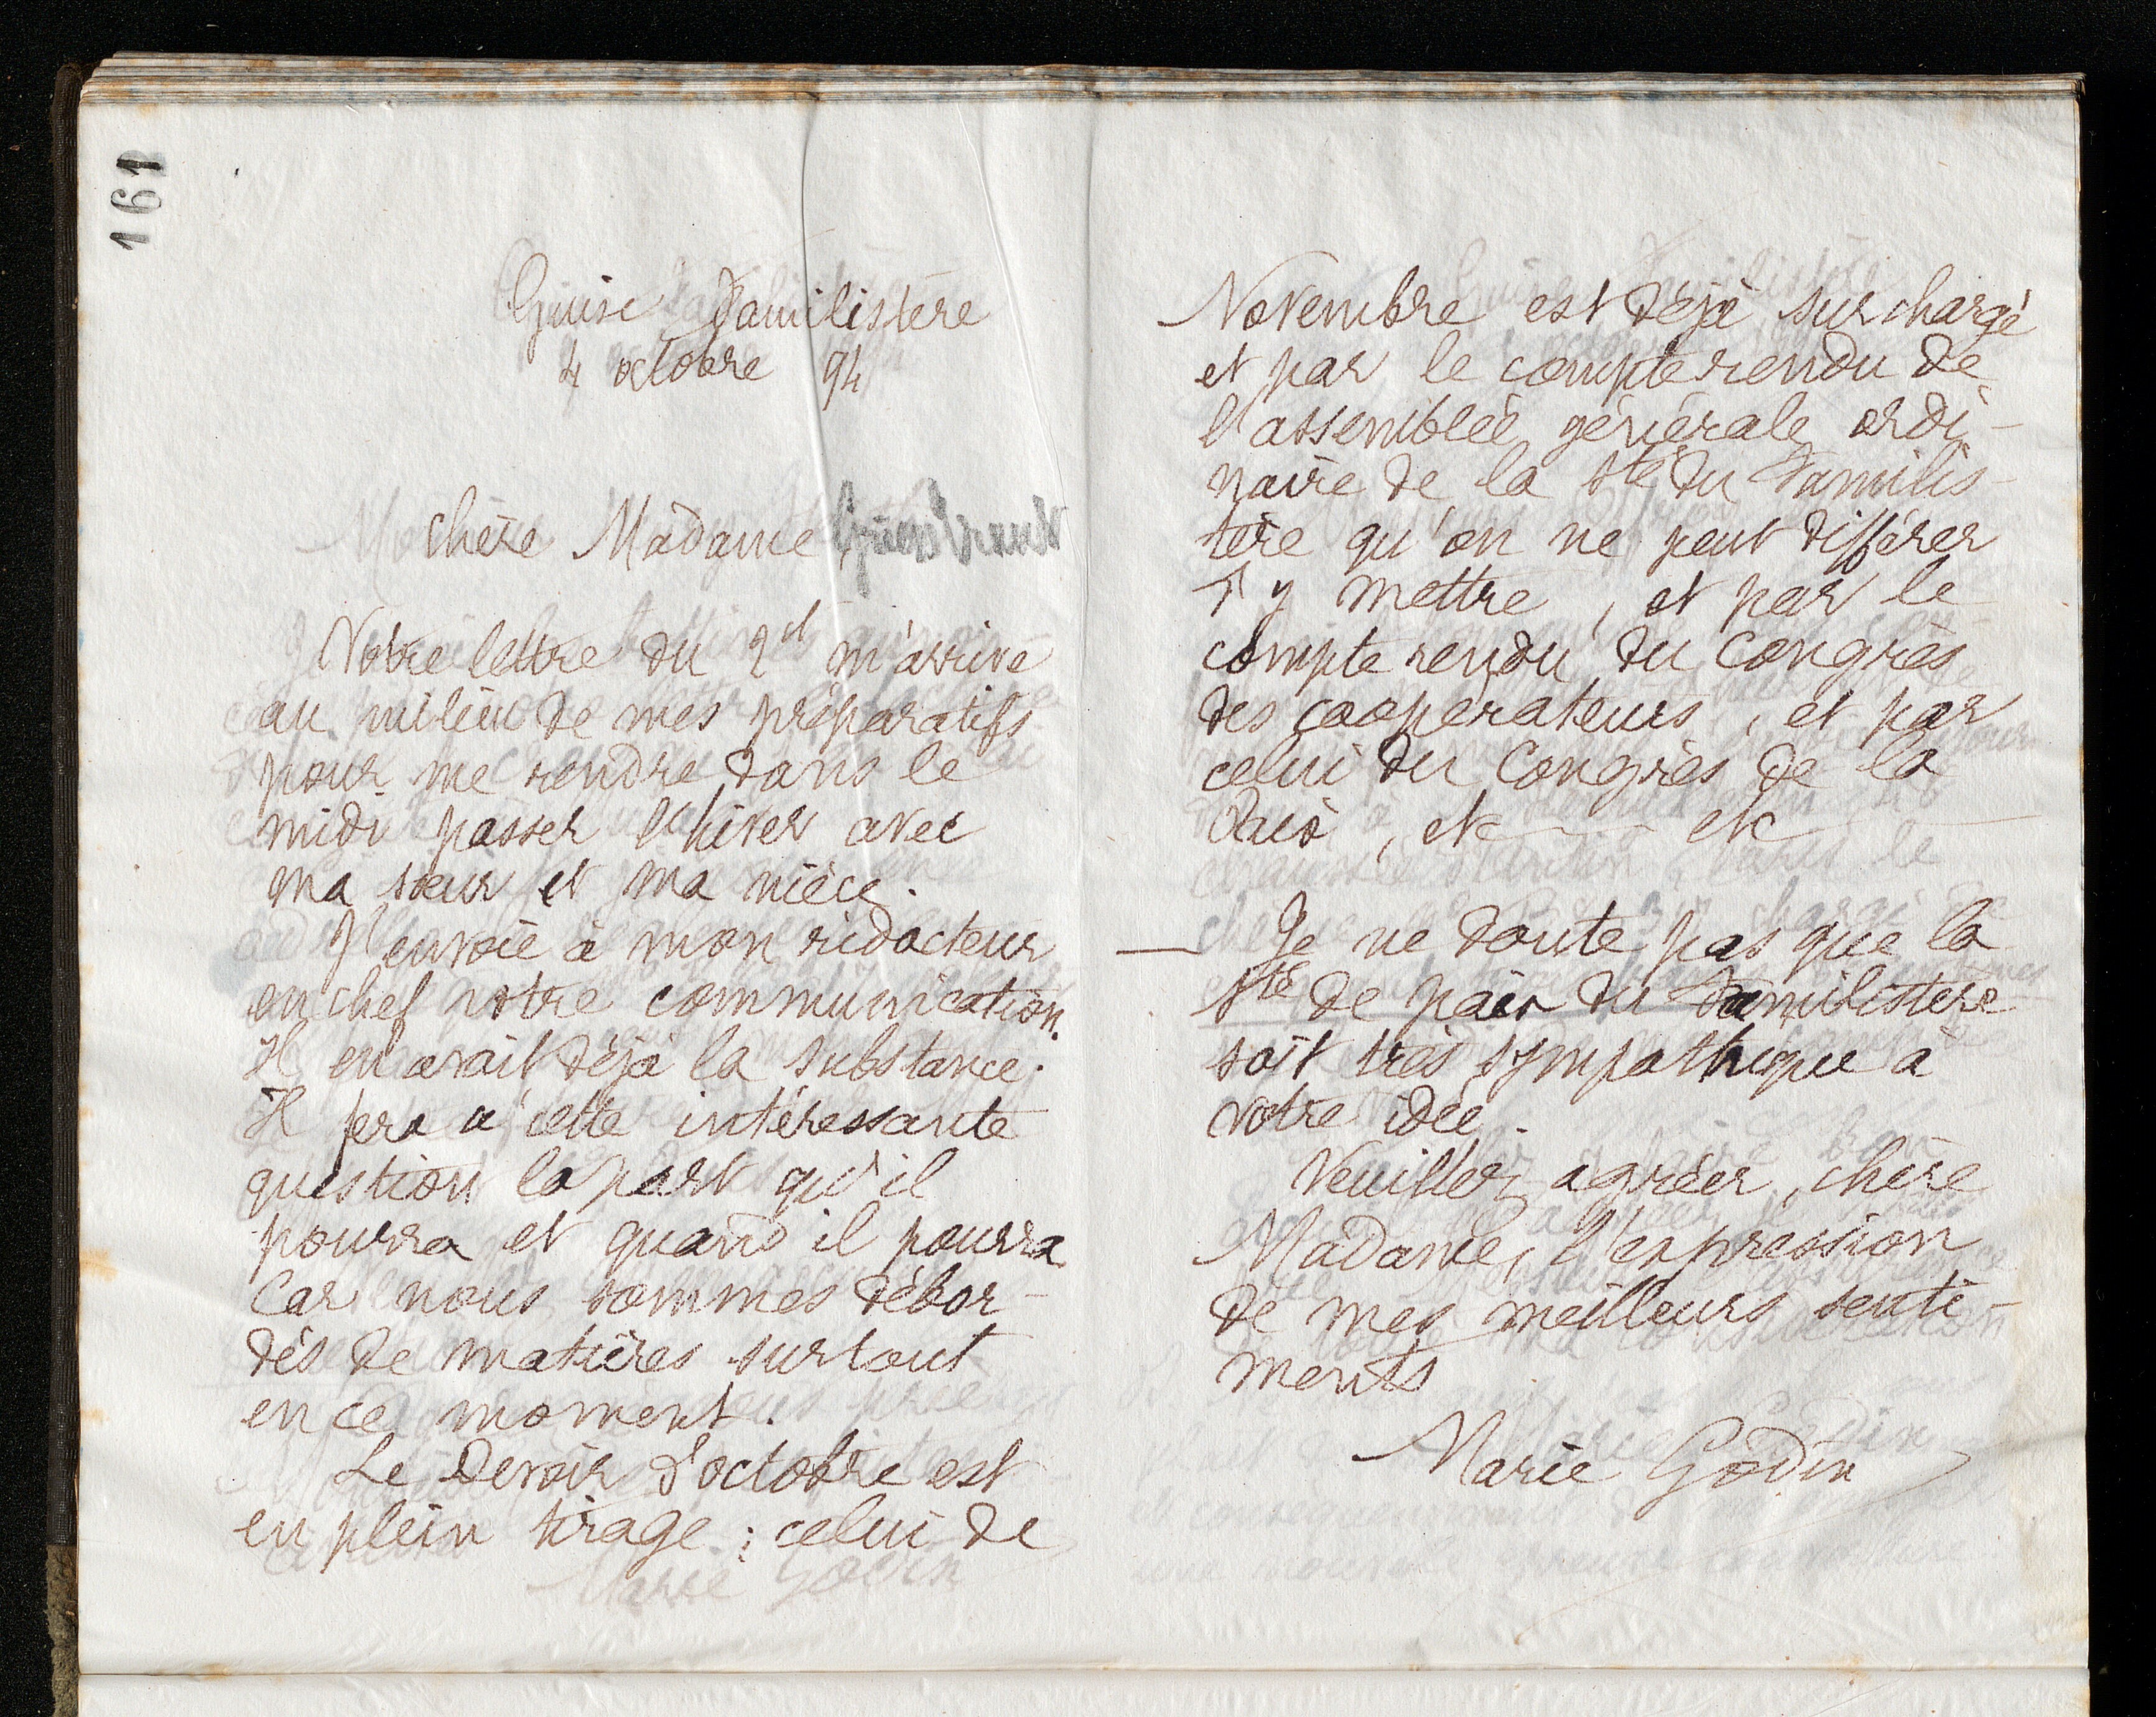 161
Guise Familistère
4 octobre 94
Chère Madame,
Votre lettre du 2ct m'arrive
au milieu de mes préparatifs
pour me rendre dans le
midi passer l'hiver avec
ma sœur et ma nièce.
J'envoie à mon rédacteur
en chef votre communication.
Il en avait déjà la substance.
Il fera à cette intéressante
question la part qu'il
pourra et quand il pourra
Car nous sommes débor-
dés de matières surtout
en ce moment.
Le Devoir d'octobre est
en plein tirage ; celui de
Novembre est déjà surchargé
et par le compte rendu de
l'assemblée générale ordi-
naire de la Sté du Familis-
tère qu'on ne peut différer
d'y mettre, et par le
compte rendu du Congrès
des coopérateurs, et par
celui du Congrès de la
Paix, etc - etc
— Je ne doute pas que la
Sté de paix du Familistère
soit très sympathique à
votre idée.
Veuillez agréer, chère
Madame, l'expression
de mes meilleurs senti-
ments
Marie Godin